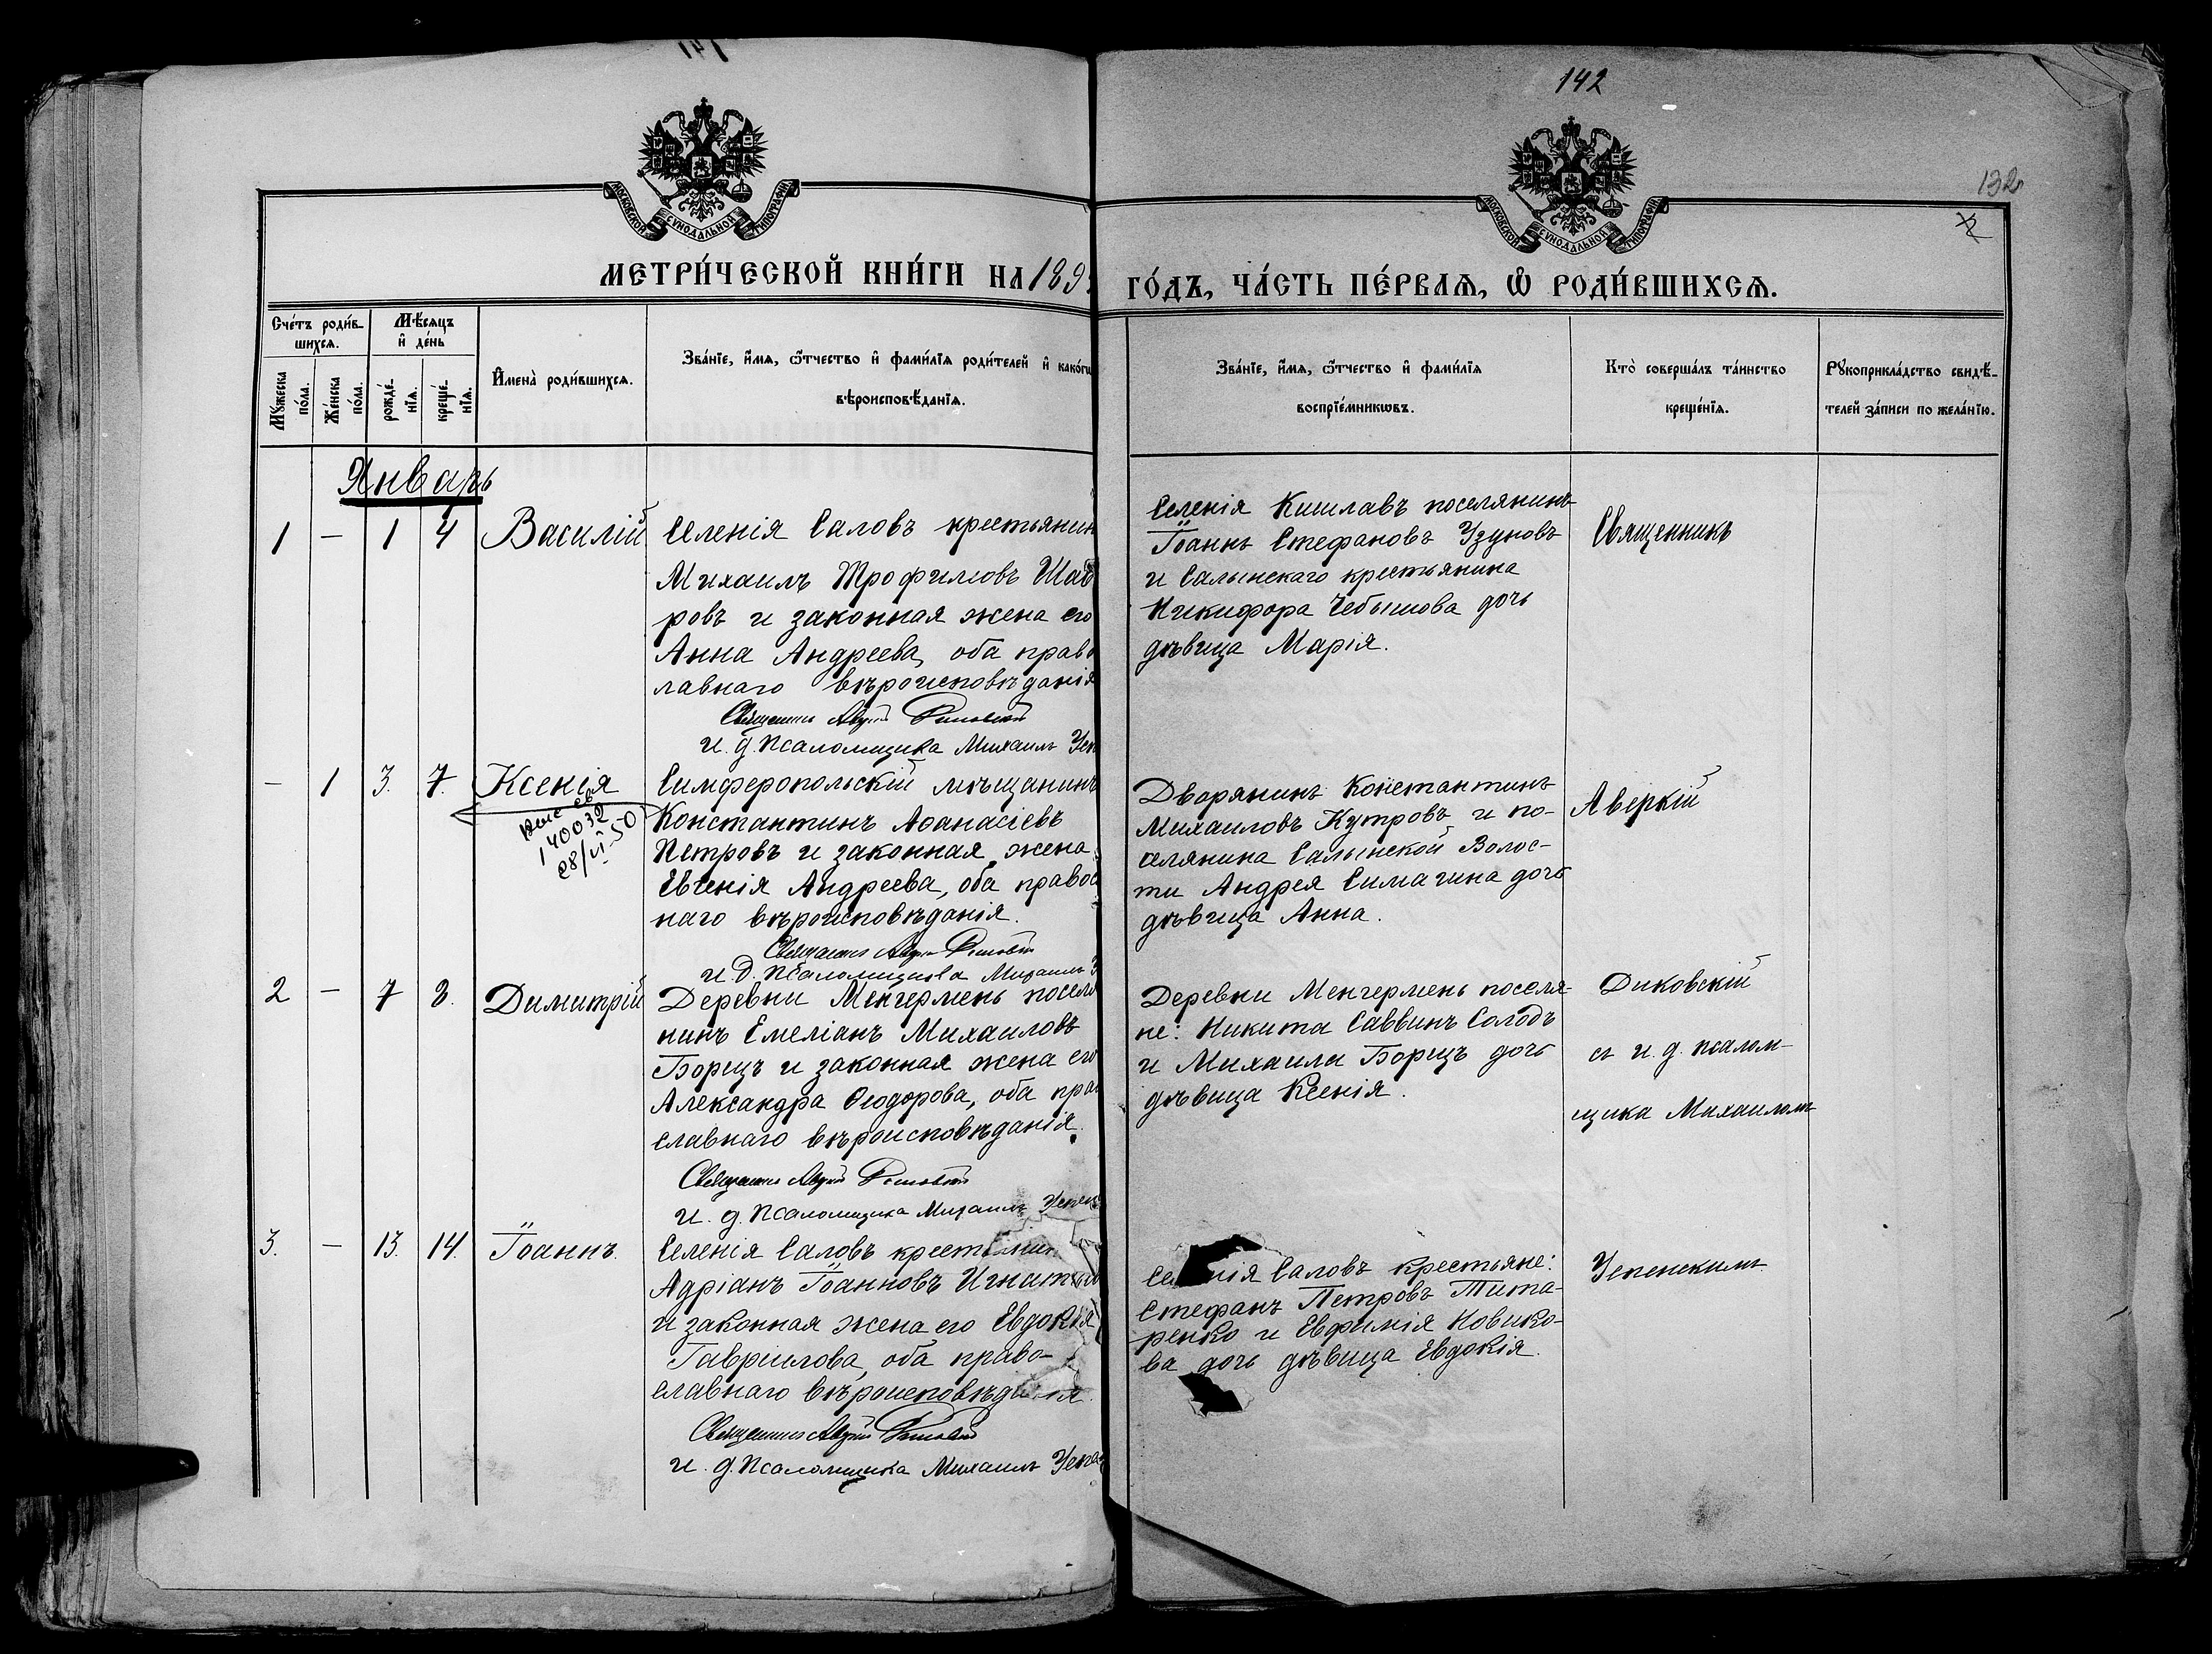 142
132
МОСКОВСКОЙ СУНОДАЛЬНОЙ ТИПОГРАФІИ
МОСКОВСКОЙ СУНОДАЛЬНОЙ ТИПОГРАФІИ
МЕТРИ́ЧЕСКОЙ КНИ́ГИ НА 189
ГО́ДЪ, ЧА́СТЬ ПЕ́РВАѦ, Ѡ҆ РОДИ́ВШИХСѦ.
Сче́тъ роди́в-
шихсѧ.
Мꙋжеска
по́ла.
Же́нска
по́ла.
Мѣ́сѧцъ
и҆ де́нь
рожде́-
нїѧ.
креще́-
нїѧ.
И҆мена̀ роди́вшихсѧ.
Зва́нїе, и҆́мѧ, ѻ҆́тчество и҆ фами́лїѧ роди́телей и҆ како́гѡ
вѣроисповѣ́данїѧ.
Зва́нїе, и҆́мѧ, ѻ҆́тчество и҆ фами́лїѧ
воспрїе́мникѡвъ.
Кто̀ соверша́лъ та́инство
креще́нїѧ.
Рꙋкоприкла́дство свидѣ́-
телей за́писи по жела́нїю.
Январь
1 — 1 4 Василій
Селенія Саловъ крестьянин
Михаилъ Трофимовъ Шав
ровъ и законная жена его
Анна Андреева, оба право
лавнаго вѣроисповѣданія
Священникъ
И. д. Псаломщика Михаилъ Усп
Селенія Кишлавъ поселянинъ
Іоаннъ Стефановъ Узуновъ
и Салынскаго крестьянина
Никифора Чебышова дочь
дѣвица Марія.
Священникъ
— 1 3. 7. Ксенія
140032
28/VI-50
Симферопольскій мѣщанинъ
Константинъ Аѳанасіевъ
Петровъ и законная жена
Евгенія Андреева, оба правос
наго вѣроисповѣданія.
Священникъ
И. д. Псаломщика Михаилъ У
Дворянинъ Константинъ
Михаиловъ Кутровъ и по-
селянина Салынской Волос-
ти Андрея Симагина дочь
дѣвица Анна.
Аверкій
2 — 7 8. Димитрій
Деревни Менгермень поселя
нинъ Емеліанъ Михаиловъ
Борщъ и законная жена его
Александра Ѳеодорова, оба пра
славнаго вѣроисповѣданія.
Священникъ
И. д. Псаломщика Михаилъ Успенс
Деревни Менгермень поселя-
не: Никита Саввинъ Солодъ
и Михаила Борщъ дочь
дѣвица Ксенія.
Диковскій
съ и. д. псалом-
щика Михаиломъ
3. — 13. 14. Іоаннъ.
Селенія Саловъ крестьянин
Адріанъ Іоанновъ Игнать
и законная жена его Евдокія
Гавріилова, оба право-
славнаго вѣроисповѣданія.
Священникъ
И. д. Псаломщика Михаилъ Успе
Се нія Саловъ крестьяне:
Стефанъ Петровъ Тита-
ренко и Евфимія Новико-
ва дочь дѣвица Евдокія.
Успенскимъ